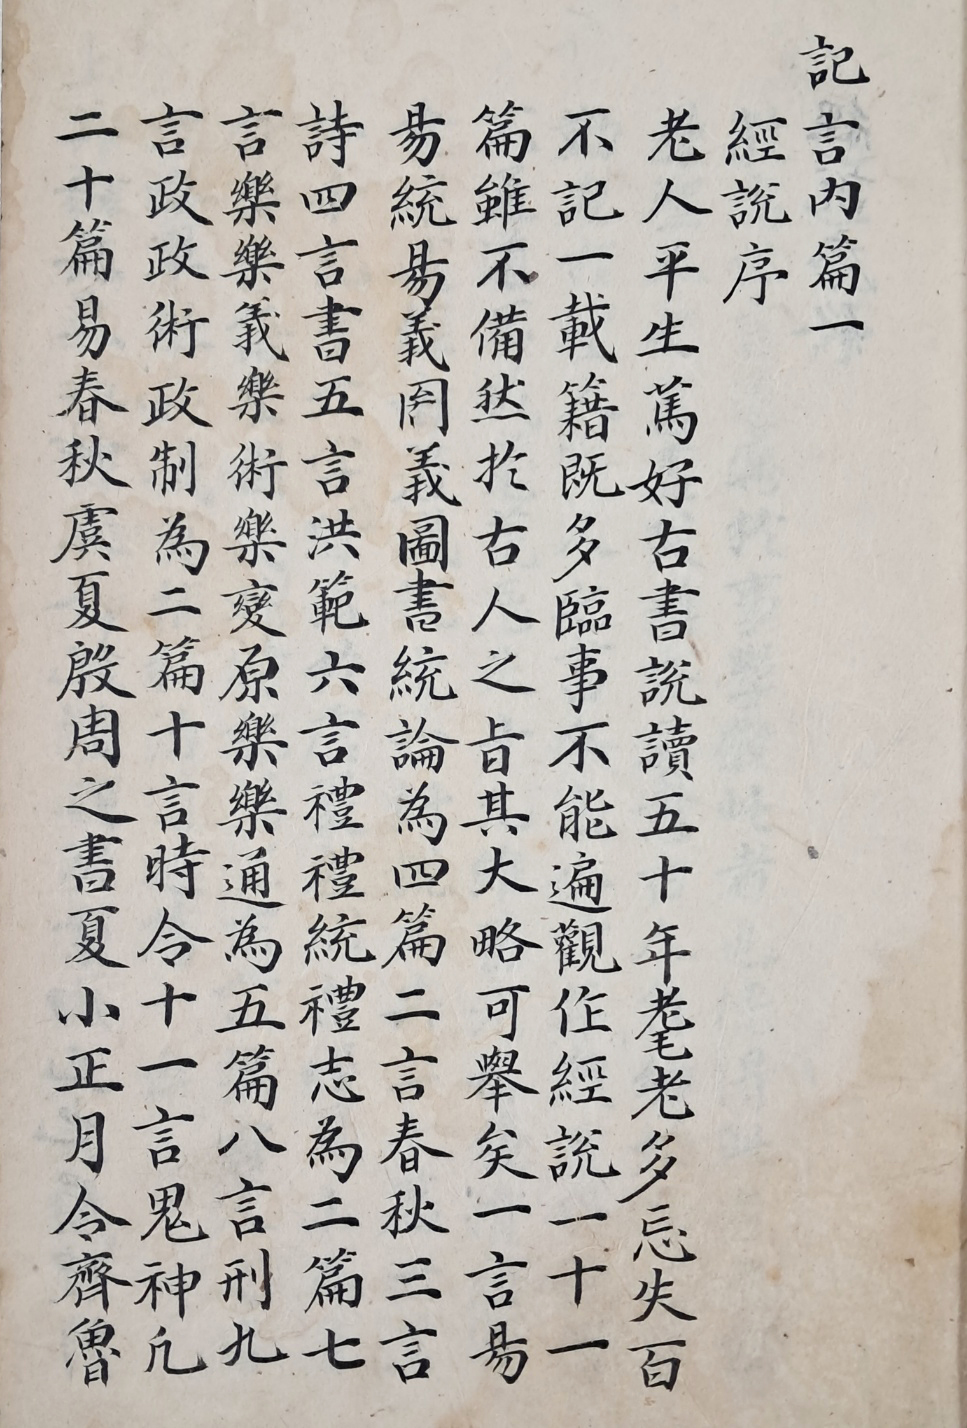 記言內篇一
經說序
老人平生篤好古書說讀五十年耄老多忘失百
不記一載籍既多臨事不能遍觀作經說一十一
篇雖不備然於古人之旨其大略可舉矣一言昜
昜統昜義罔義圖書統論為四篇二言春秋三言
詩四言書五言洪範六言禮禮統禮志為二篇七
言樂樂義樂術樂變原樂樂通為五篇八言刑九
言政政術政制為二篇十言時令十一言鬼神凡
二十篇易春秋虞夏殷周之書夏小正月令齊魯